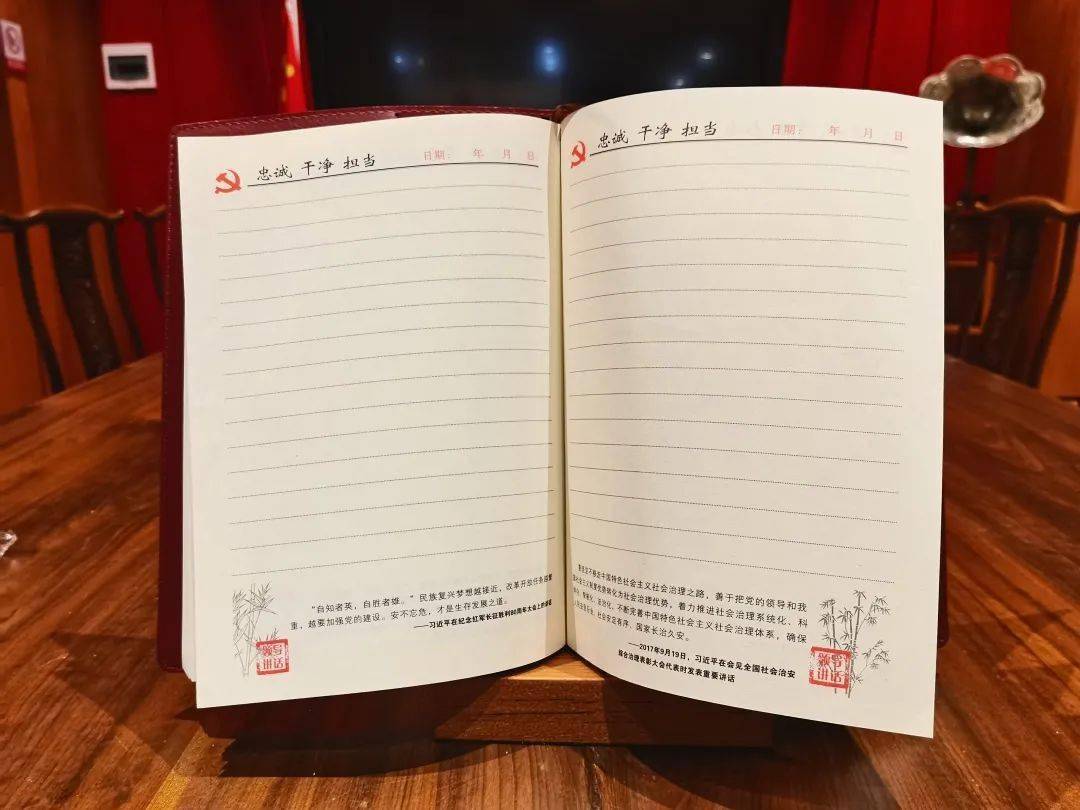 忠诚 干净 担当
日期： 年 月 日
“自知者英，自胜者雄。”民族复兴梦想越接近，改革开放任务越繁
重，越要加强党的建设。安不忘危，才是生存发展之道。
——习近平在纪念红军长征胜利80周年大会上的讲话
领导
讲话
忠诚 干净 担当
日期： 年 月 日
要坚定不移走中国特色社会主义社会治理之路，善于把党的领导和我
国社会主义制度优势转化为社会治理优势，着力推进社会治理系统化、科
智能化、法治化，不断完善中国特色社会主义社会治理体系，确保
人民安居乐业、社会安定有序、国家长治久安。
——2017年9月19日，习近平在会见全国社会治安
综合治理表彰大会代表时发表重要讲话
领导
讲话